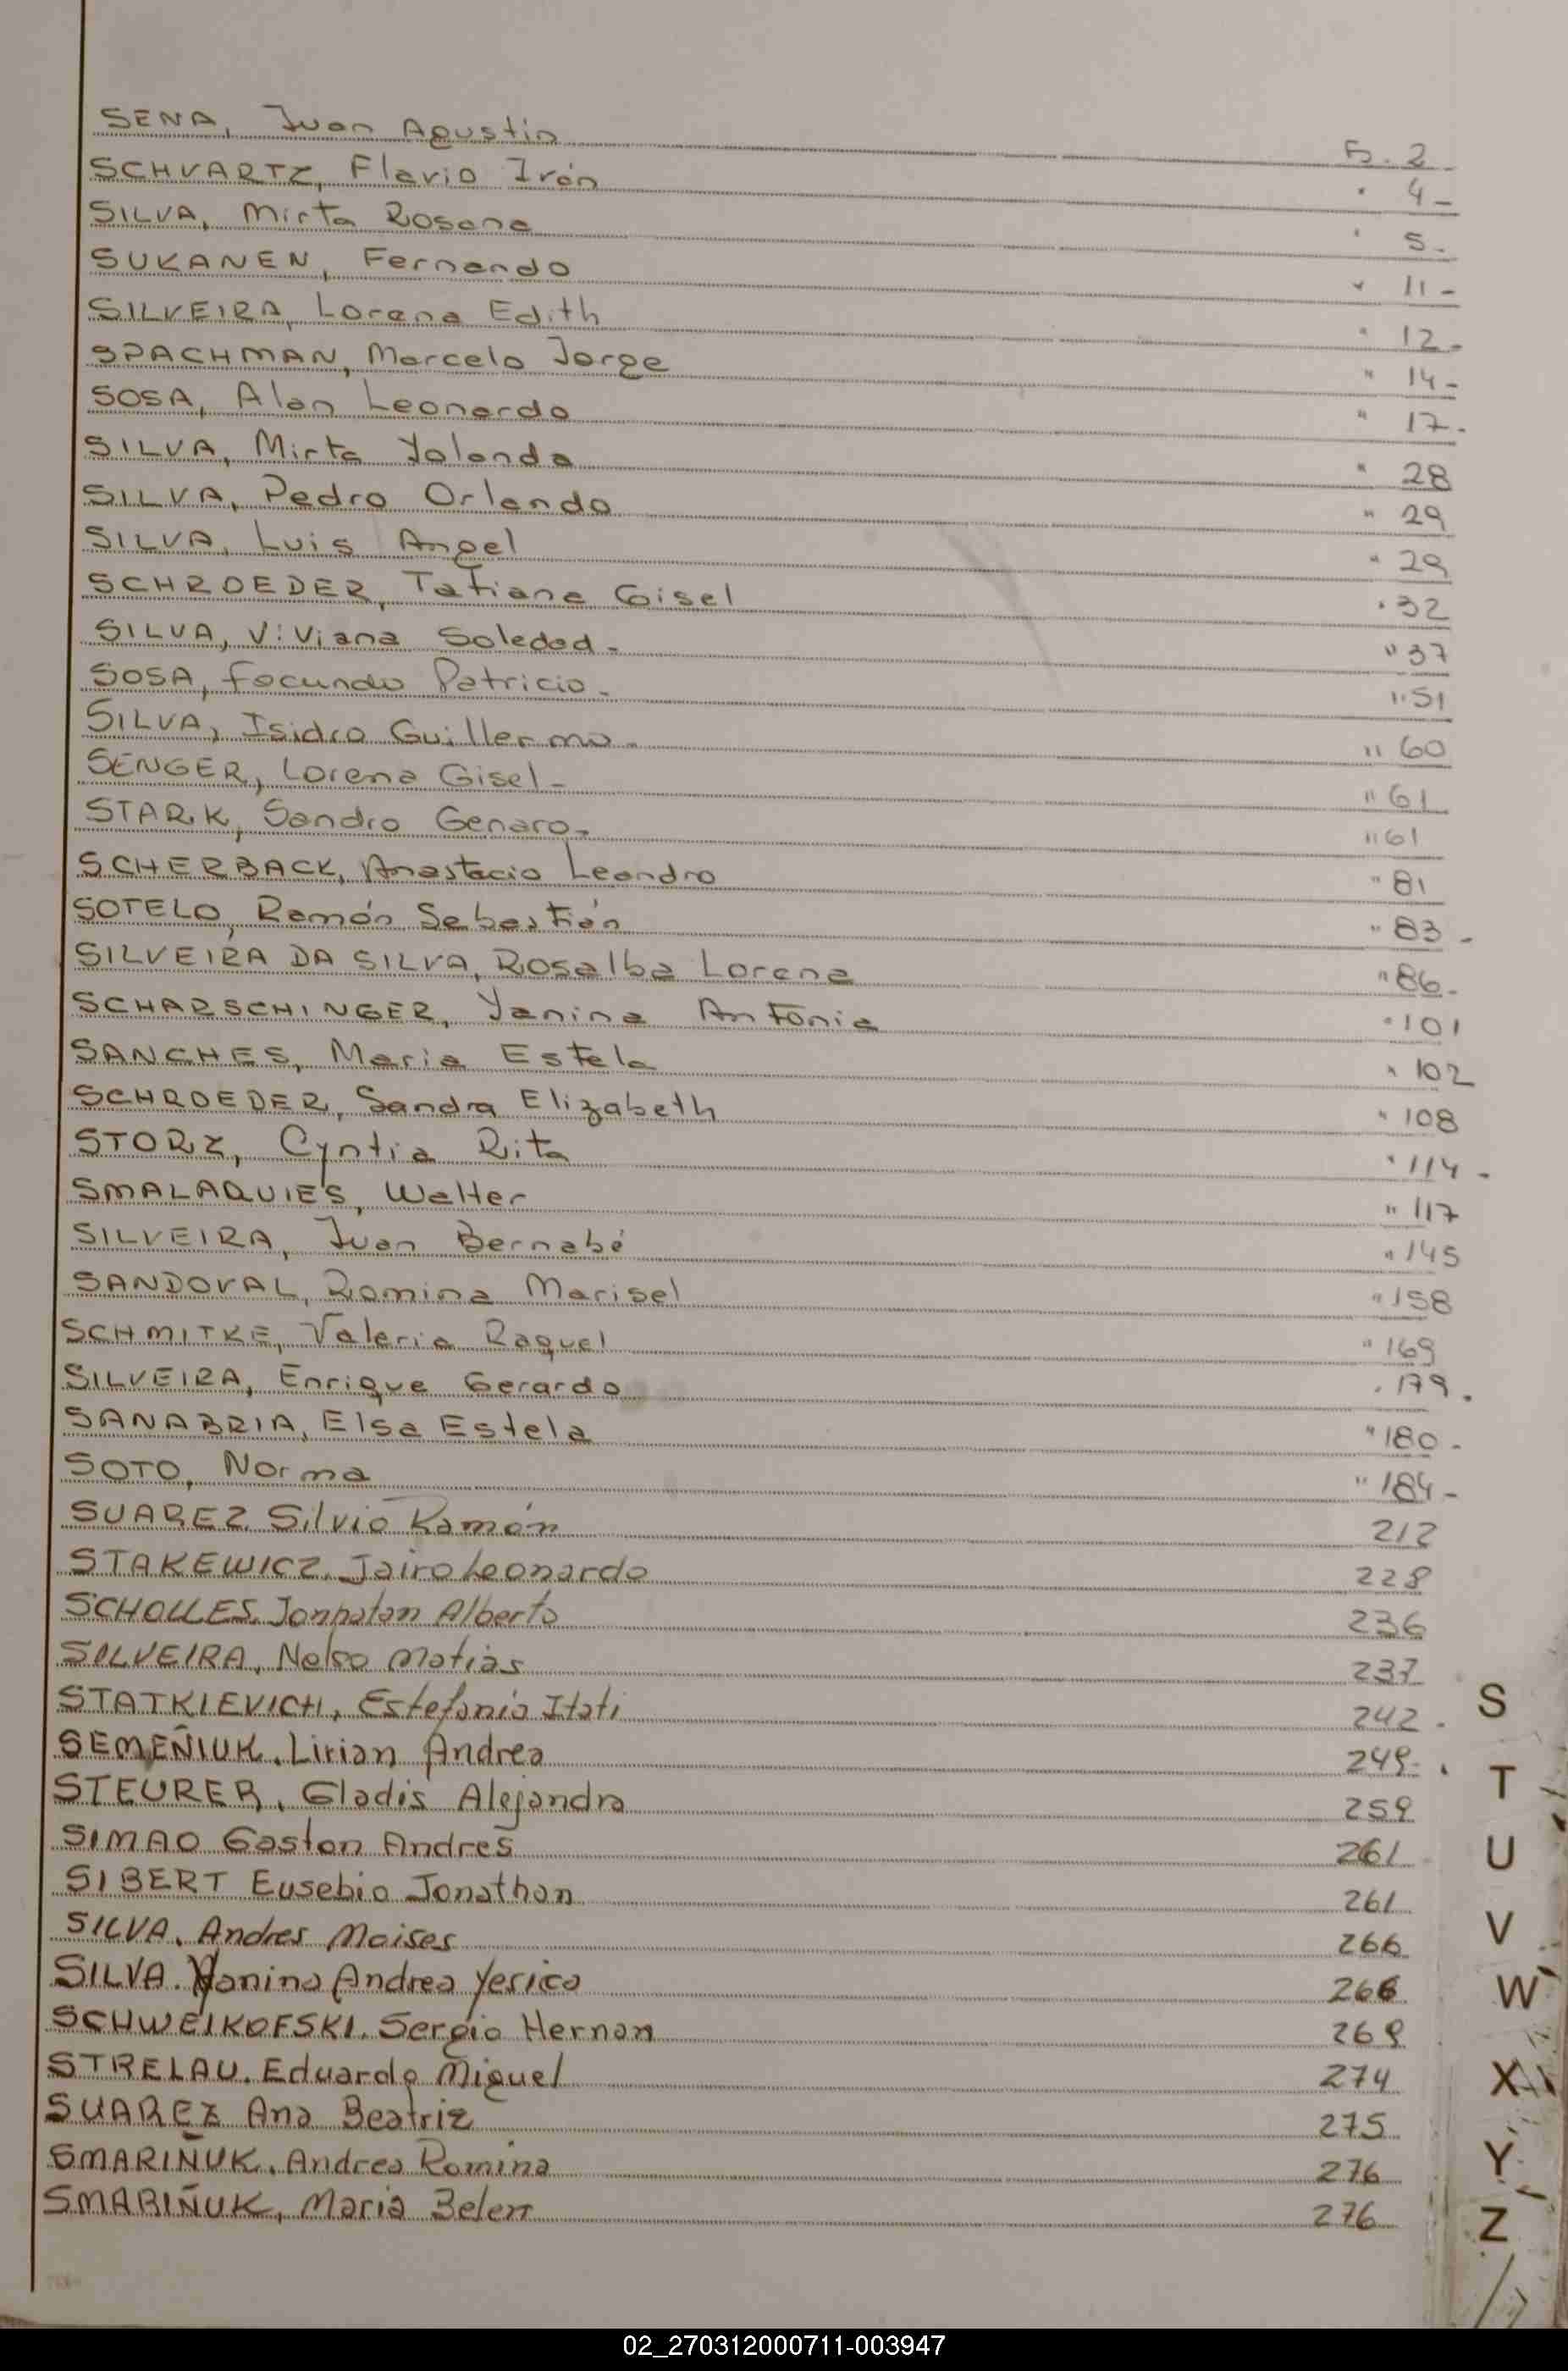 SENA, Juan Agustin Fs. 2-
SCHVARTZ, Flavio Irán " 4-
SILVA, Mirta Rosana " 5-
SUKANEN, Fernando " 11-
SILVEIRA, Lorena Edith " 12-
SPACHMAN, Marcelo Jorge " 14-
SOSA, Alan Leonardo " 17-
SILVA, Mirta Yolanda " 28
SILVA, Pedro Orlando " 29
SILVA, Luis Angel " 29
SCHROEDER, Tatiana Gisel " 32
SILVA, Viviana Soledad- " 37
SOSA, Facundo Patricio- " 51
SILVA, Isidro Guillermo- " 60
SENGER, Lorena Gisel- " 61
STARK, Sandro Genaro- " 61
SCHERBACK, Anastacio Leandro " 81
SOTELO, Ramón Sebastián " 83-
SILVEIRA DA SILVA, Rosalba Lorena " 86-
SCHARSCHINGER, Yanina Antonia " 101
SANCHES, Maria Estela " 102
SCHROEDER, Sandra Elizabeth " 108
STORZ, Cyntia Rita " 114-
SMALAQUIES, Walter " 117
SILVEIRA, Juan Bernabé " 145
SANDOVAL, Romina Marisel " 158
SCHMITKE, Valeria Raquel " 169
SILVEIRA, Enrique Gerardo " 179.
SANABRIA, Elsa Estela " 180-
SOTO, Norma " 184-
SUAREZ Silvio Ramón 212
STAKEWICZ, Jairo Leonardo 228
SCHOLLES, Jonnatan Alberto 236
SILVEIRA, Nelso Matias 237
STATKIEVICH, Estefania Itati 242-
SEMEÑIUK. Lirian Andrea 249-
STEURER, Gladis Alejandra 259
SIMAO Gaston Andres 261
SIBERT Eusebio Jonathan 261
SILVA. Andres Moises 266
SILVA. Yanina Andrea Yesica 266
SCHWEIKOFSKI. Sergio Hernan 269
STRELAU. Eduardo Miguel 274
SUAREZ Ana Beatriz 275
SMARIÑUK. Andrea Romina 276
SMARIÑUK, Maria Belen 276
S
T
U
V
W
X
Y
Z
02_270312000711-003947